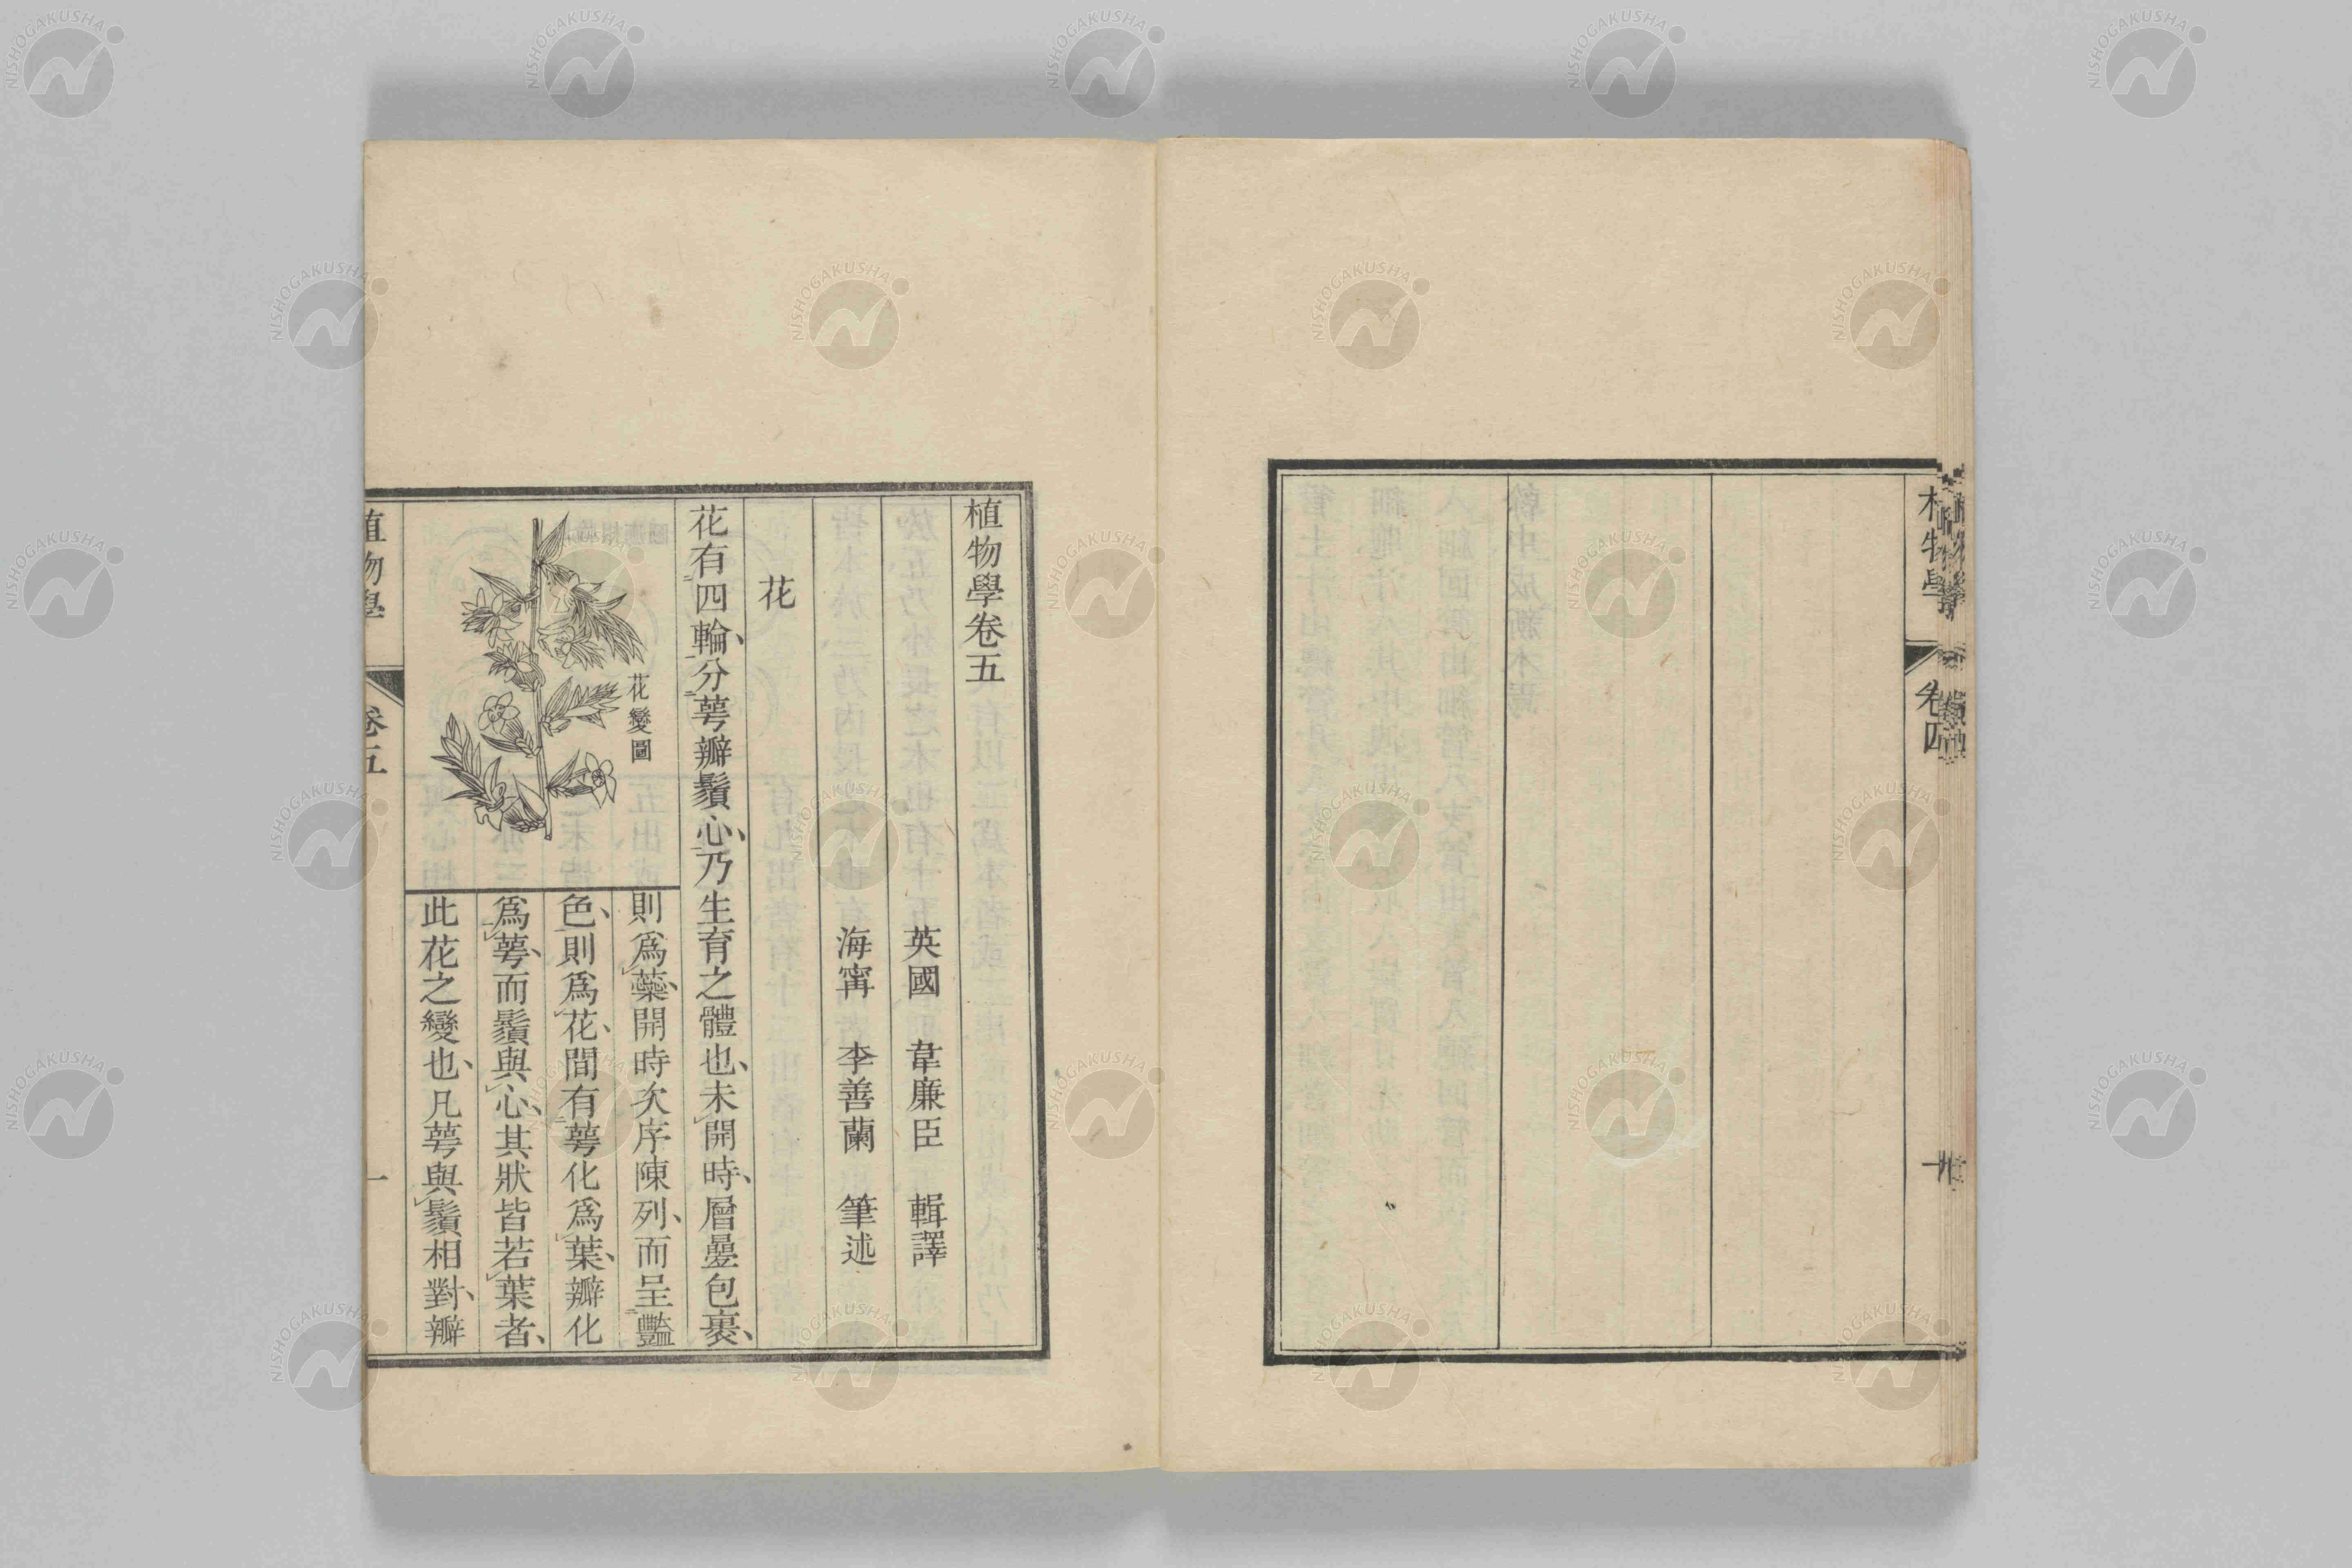 植物學卷五
英國 韋廉臣 輯譯
海寧 李善蘭 筆述
花
花有四輪、分萼瓣鬚心、乃生育之體也、未開時、層疊包裹、
則爲蘂、開時次序陳列、而呈豔
色、則爲花、間有萼化爲葉、瓣化
爲萼、而鬚與心、其狀皆若葉者、
此花之變也、凡萼與鬚相對、瓣
花變圖
植物學 卷五 一
卷四
NISHOGAKUSHA